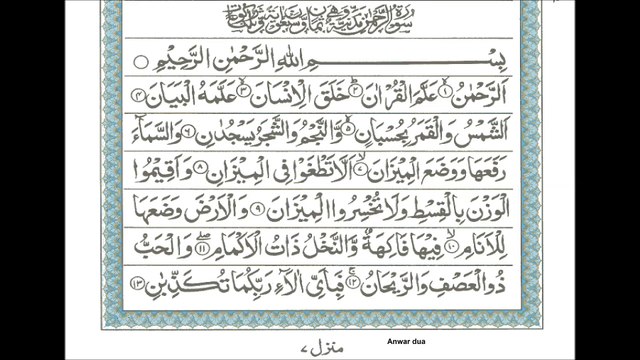 سورة الرحمن مدنية وهي ثمان وسبعون آية وثلث ركوعات
بِسْمِ اللهِ الرَّحْمٰنِ الرَّحِيْمِ ○
اَلرَّحْمٰنُ ۙ﴿۱﴾ عَلَّمَ الْقُرْاٰنَ ؕ﴿۲﴾ خَلَقَ الْاِنْسَانَ ۙ﴿۳﴾ عَلَّمَهُ الْبَيَانَ ﴿۴﴾
اَلشَّمْسُ وَالْقَمَرُ بِحُسْبَانٍ ۪﴿۵﴾ وَّالنَّجْمُ وَالشَّجَرُ يَسْجُدٰنِ ﴿۶﴾ وَالسَّمَآءَ
رَفَعَهَا وَوَضَعَ الْمِيْزَانَ ۙ﴿۷﴾ اَلَّا تَطْغَوْا فِى الْمِيْزَانِ ﴿۸﴾ وَاَقِيْمُوا
الْوَزْنَ بِالْقِسْطِ وَلَا تُخْسِرُوا الْمِيْزَانَ ﴿۹﴾ وَالْاَرْضَ وَضَعَهَا
لِلْاَنَامِ ۙ﴿۱۰﴾ فِيْهَا فَاكِهَةٌ وَّالنَّخْلُ ذَاتُ الْاَكْمَامِ ۖ﴿۱۱﴾ وَالْحَبُّ
ذُو الْعَصْفِ وَالرَّيْحَانُ ۚ﴿۱۲﴾ فَبِاَىِّ اٰلَآءِ رَبِّكُمَا تُكَذِّبٰنِ ﴿۱۳﴾
منزل ۷
Anwar dua